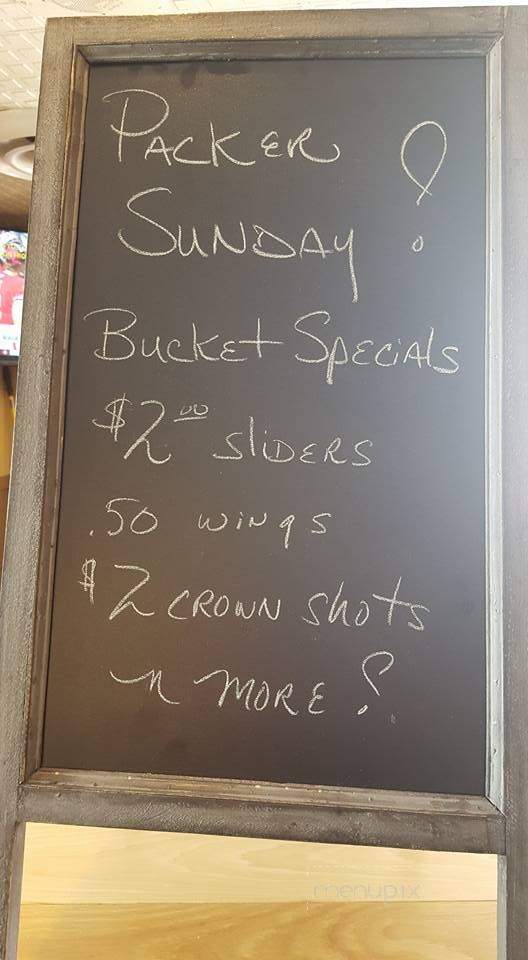 PACKER
SUNDAY!
BUCKET SPECIALS
$2.00 SLIDERS
.50 WINGS
$2 CROWN SHOTS
N MORE!
menupix